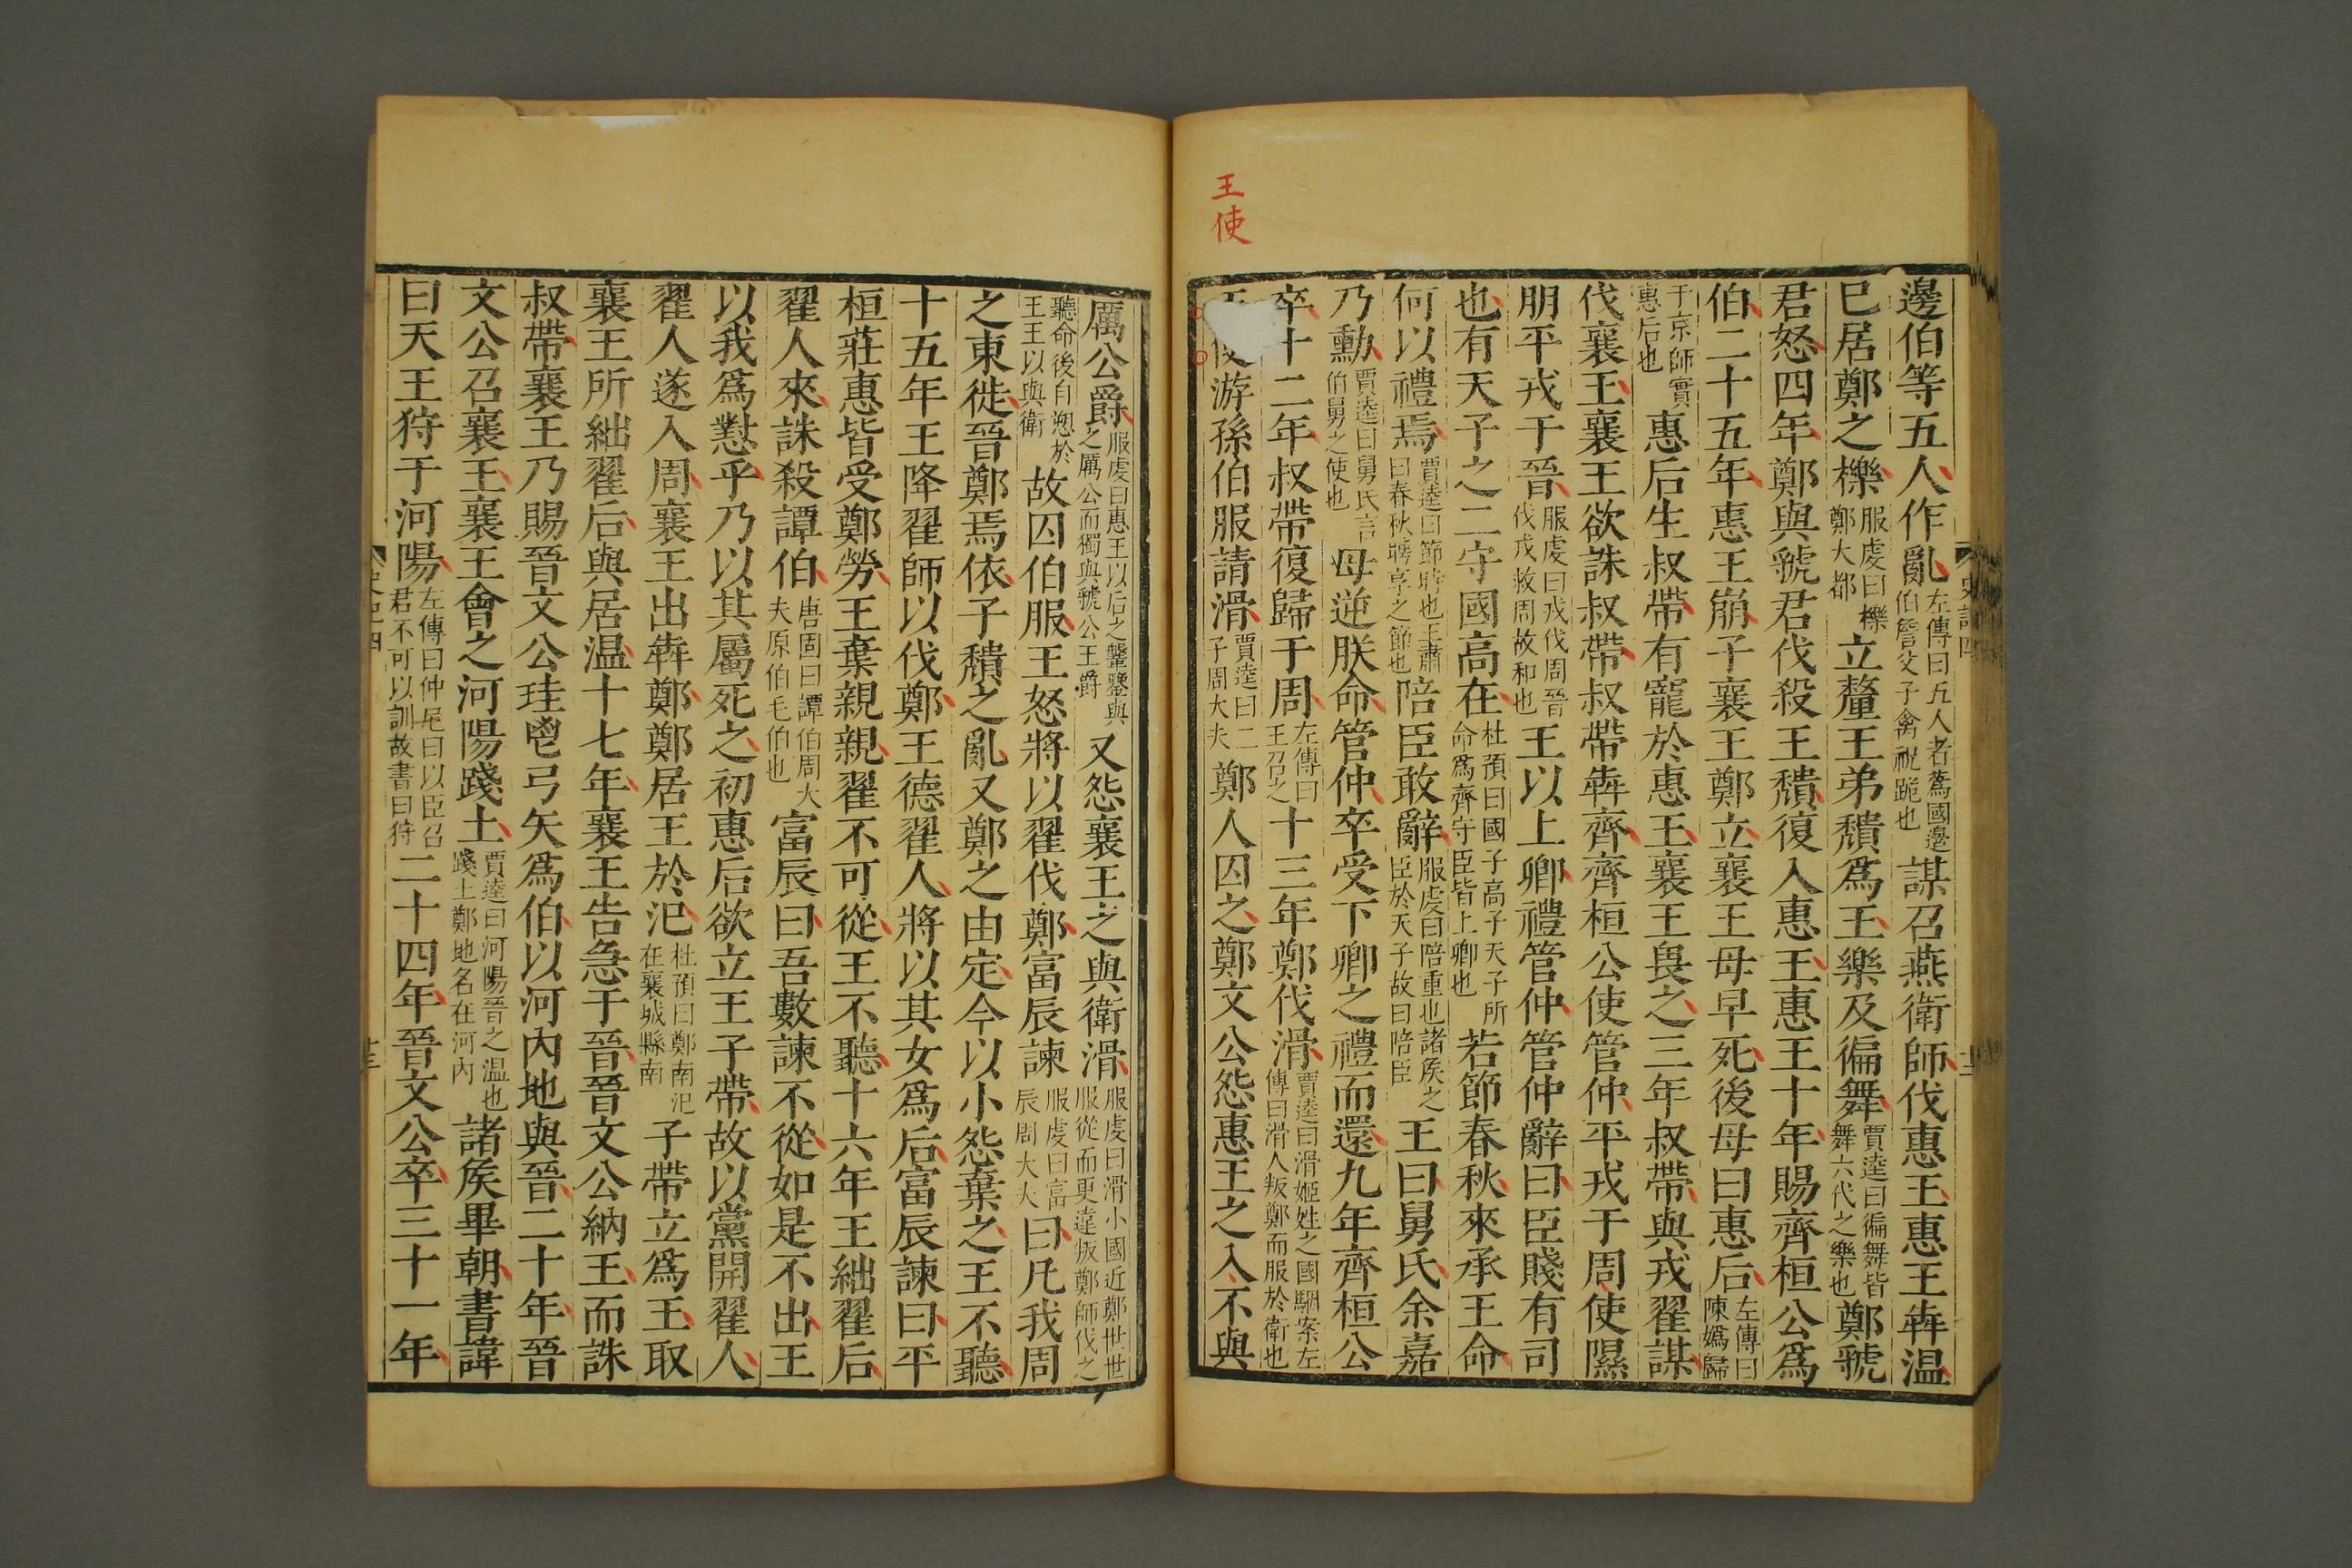 王使
邊伯等五人作亂左傳曰五人者蔿國邊伯詹父子禽祝跪也謀召燕衛師伐惠王惠王犇温
巳居鄭之櫟服虔曰櫟鄭大都立釐王弟穨爲王樂及徧舞賈逵曰徧舞皆舞六代之樂也鄭虢
君怒四年鄭與虢君伐殺王穨復入惠王惠王十年賜齊桓公爲
伯二十五年惠王崩子襄王鄭立襄王母早死後母曰惠后左傳曰陳嬀歸
于京師實惠后也惠后生叔帶有寵於惠王襄王畏之三年叔帶與戎翟謀
伐襄王襄王欲誅叔帶叔帶犇齊齊桓公使管仲平戎于周使隰
朋平戎于晉服虔曰戎伐周晉伐戎救周故和也王以上卿禮管仲管仲辭曰臣賤有司
也有天子之二守國高在杜預曰國子高子天子所命爲齊守臣皆上卿也若節春秋來承王命
何以禮焉賈逵曰節時也王肅曰春秋聘享之節也陪臣敢辭服虔曰陪重也諸侯之臣於天子故曰陪臣王曰舅氏余嘉
乃勳賈逵曰舅氏言伯舅之使也毋逆朕命管仲卒受下卿之禮而還九年齊桓公
卒十二年叔帶復歸于周左傳曰王召之十三年鄭伐滑賈逵曰滑姬姓之國駰案左傳曰滑人叛鄭而服於衛也
游孫伯服請滑賈逵曰二子周大夫鄭人囚之鄭文公怨惠王之入不與
厲公爵服虔曰惠王以后之鞶鑒與之厲公而獨與虢公王爵又怨襄王之與衛滑服虔曰滑小國近鄭世世服從而更違叛鄭師伐之
聽命後自愬於王王以與衛故囚伯服王怒將以翟伐鄭富辰諫服虔曰富辰周大夫曰凡我周
之東徙晉鄭焉依子穨之亂又鄭之由定今以小怨棄之王不聽
十五年王降翟師以伐鄭王德翟人將以其女爲后富辰諫曰平
桓莊惠皆受鄭勞王棄親親翟不可從王不聽十六年王絀翟后
翟人來誅殺譚伯唐固曰譚伯周大夫原伯毛伯也富辰曰吾數諫不從如是不出王
以我爲懟乎乃以其屬死之初惠后欲立王子帶故以黨開翟人
翟人遂入周襄王出犇鄭鄭居王於氾杜預曰鄭南氾在襄城縣南子帶立爲王取
襄王所絀翟后與居温十七年襄王告急于晉晉文公納王而誅
叔帶襄王乃賜晉文公珪鬯弓矢爲伯以河內地與晉二十年晉
文公召襄王襄王會之河陽踐土賈逵曰河陽晉之温也踐土鄭地名在河內諸侯畢朝書諱
曰天王狩于河陽左傳曰仲尼曰以臣召君不可以訓故書曰狩二十四年晉文公卒三十一年